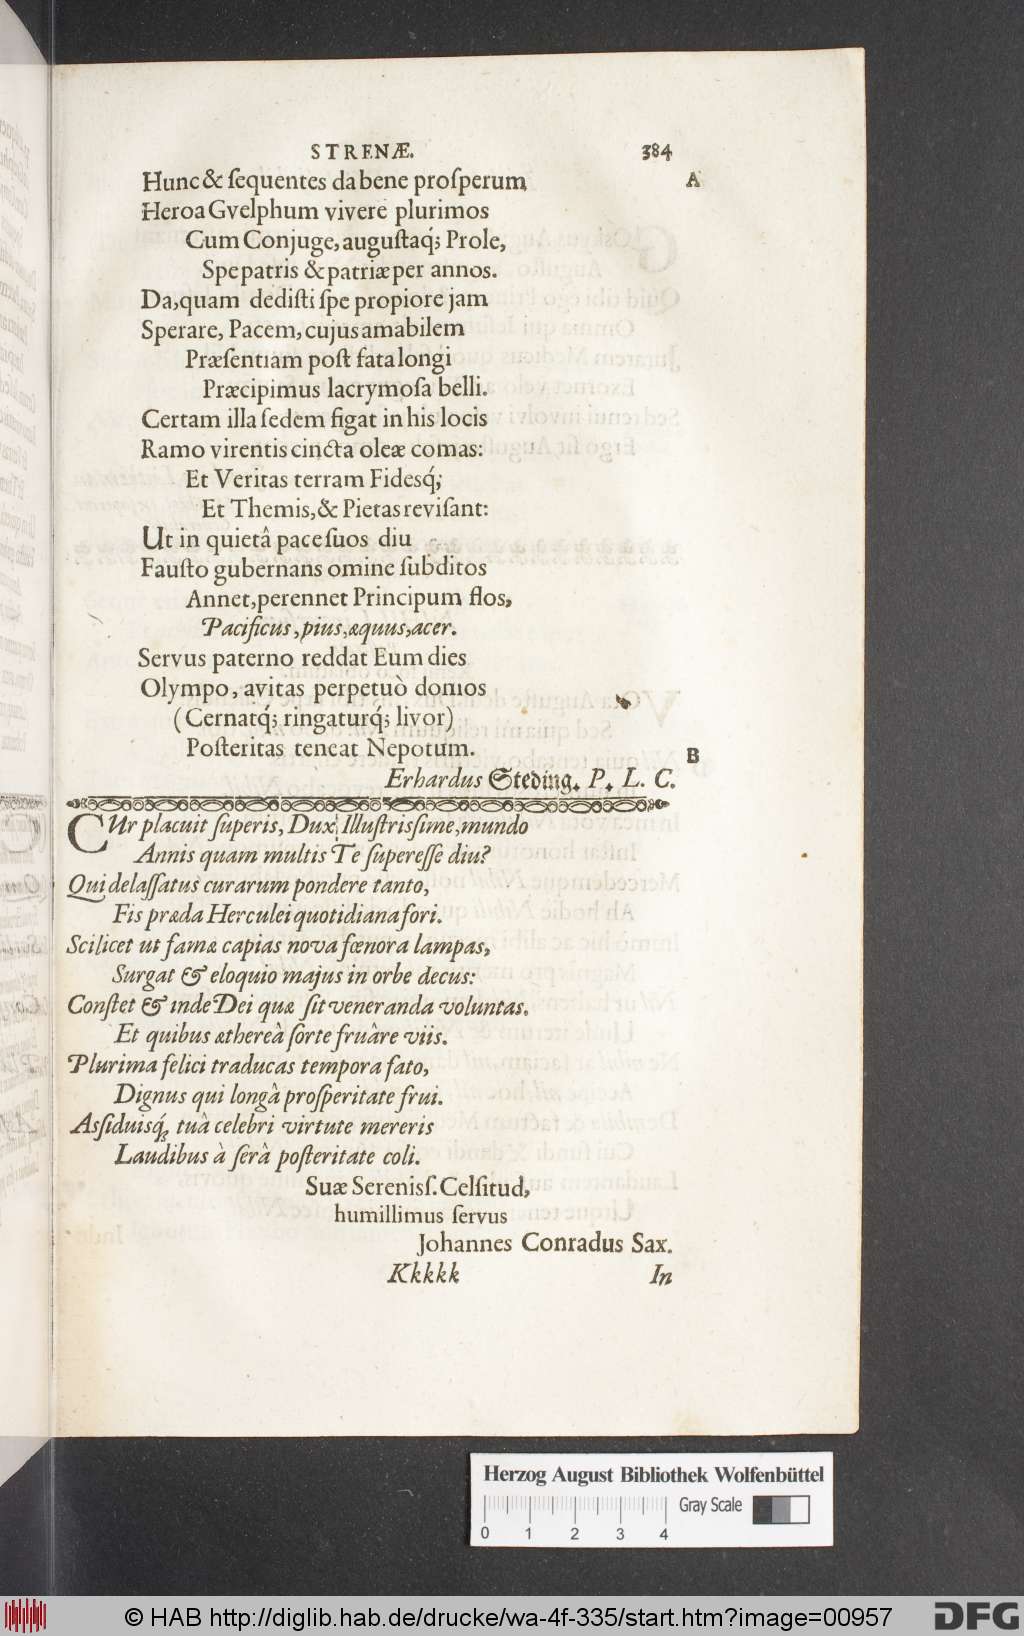 STRENÆ. 384
Hunc & ſequentes da bene proſperum A
Heroa Gvelphum vivere plurimos
Cum Conjuge, auguſtaq́; Prole,
Spe patris & patriæ per annos.
Da, quam dediſti ſpe propiore jam
Sperare, Pacem, cujus amabilem
Præſentiam poſt fata longi
Præcipimus lacrymoſa belli.
Certam illa ſedem figat in his locis
Ramo virentis cincta oleæ comas:
Et Veritas terram Fidesq́;
Et Themis, & Pietas reviſant:
Ut in quietâ pace ſuos diu
Fauſto gubernans omine ſubditos
Annet, perennet Principum flos,
Pacificus, pius, æquus, acer.
Servus paterno reddat Eum dies
Olympo, avitas perpetuò domos
(Cernatq́; ringaturq́; livor)
Poſteritas teneat Nepotum. B
Erhardus Steding. P. L. C.
CUr placuit ſuperis, Dux Illuſtrisſime, mundo
Annis quam multis Te ſupereſſe diu?
Qui delaſſatus curarum pondere tanto,
Fis præda Herculei quotidiana fori.
Scilicet ut famæ capias nova fœnora lampas,
Surgat & eloquio majus in orbe decus:
Conſtet & inde Dei quæ ſit veneranda voluntas.
Et quibus æthereâ ſorte fruâre viis.
Plurima felici traducas tempora fato,
Dignus qui longâ proſperitate frui.
Asſiduisq́; tuâ celebri virtute mereris
Laudibus à ſerâ poſteritate coli.
Suæ Sereniſſ. Celſitud,
humillimus ſervus
Johannes Conradus Sax.
Kkkkk In
Herzog August Bibliothek Wolfenbüttel
Gray Scale
0 1 2 3 4
© HAB http://diglib.hab.de/drucke/wa-4f-335/start.htm?image=00957 DFG